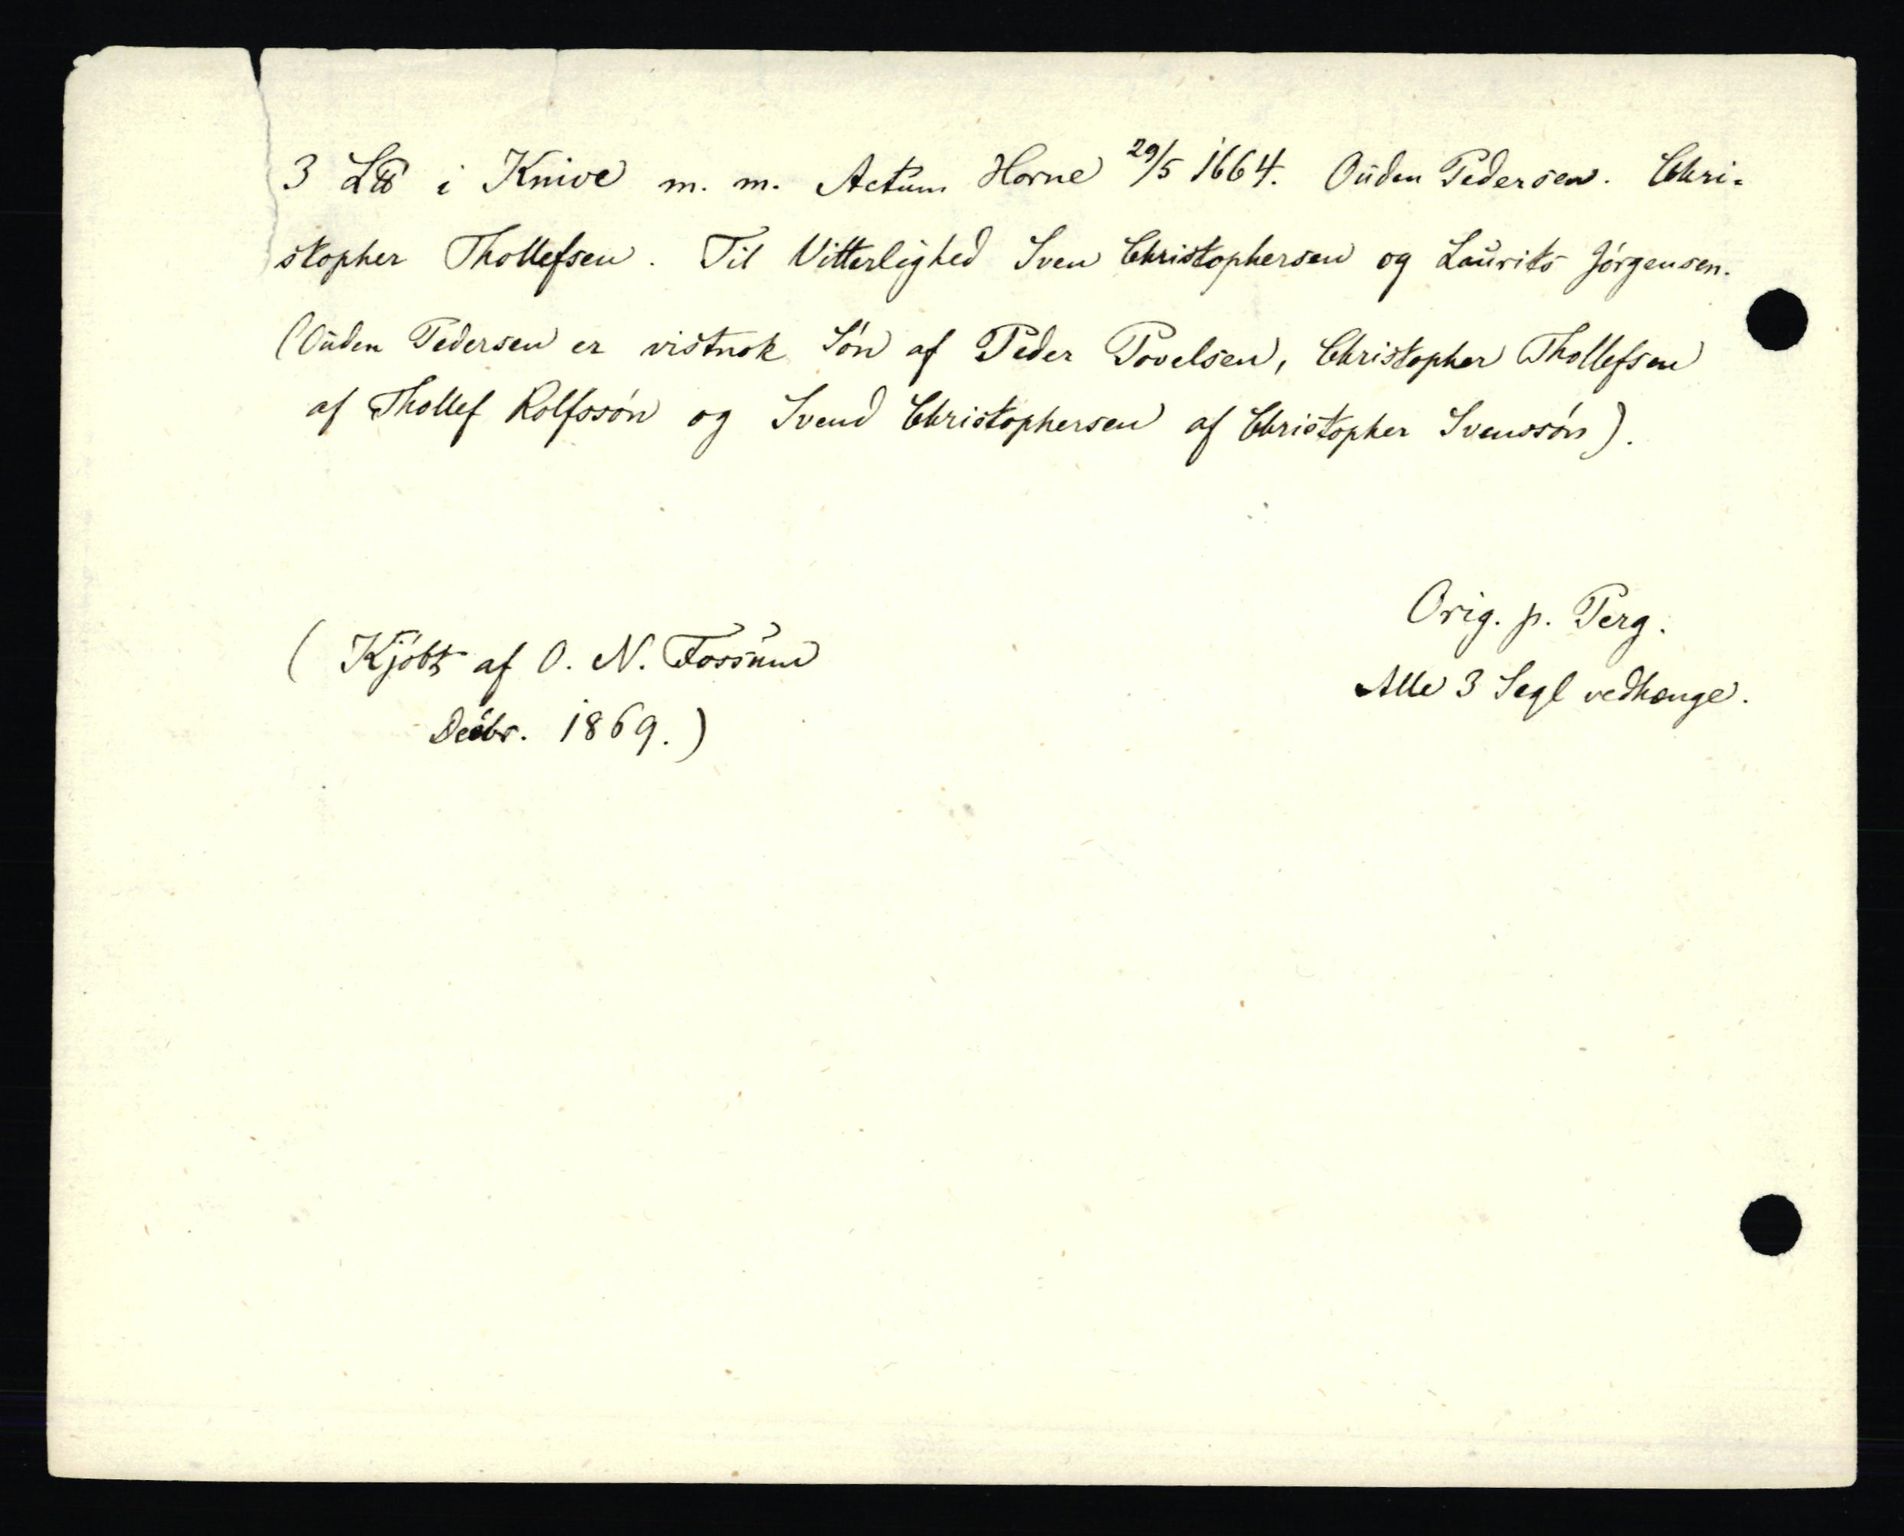 3 L℔ i Knive m. m. Actum Horne 29/5 1664. Ouden Pedersen. Chri-
stopher Thollefsen. Til Vitterlighed Sven Christophersen og Laurits Jørgensen.
(Ouden Pedersen er vistnok Søn af Peder Povelsen, Christopher Thollefsen
af Thollef Rolfssøn og Svend Christophersen af Christopher Svenssøn).
Orig. p. Perg.
Alle 3 Segl vedhænge.
(Kjøbt af O. N. Fossum
Decbr. 1869.)